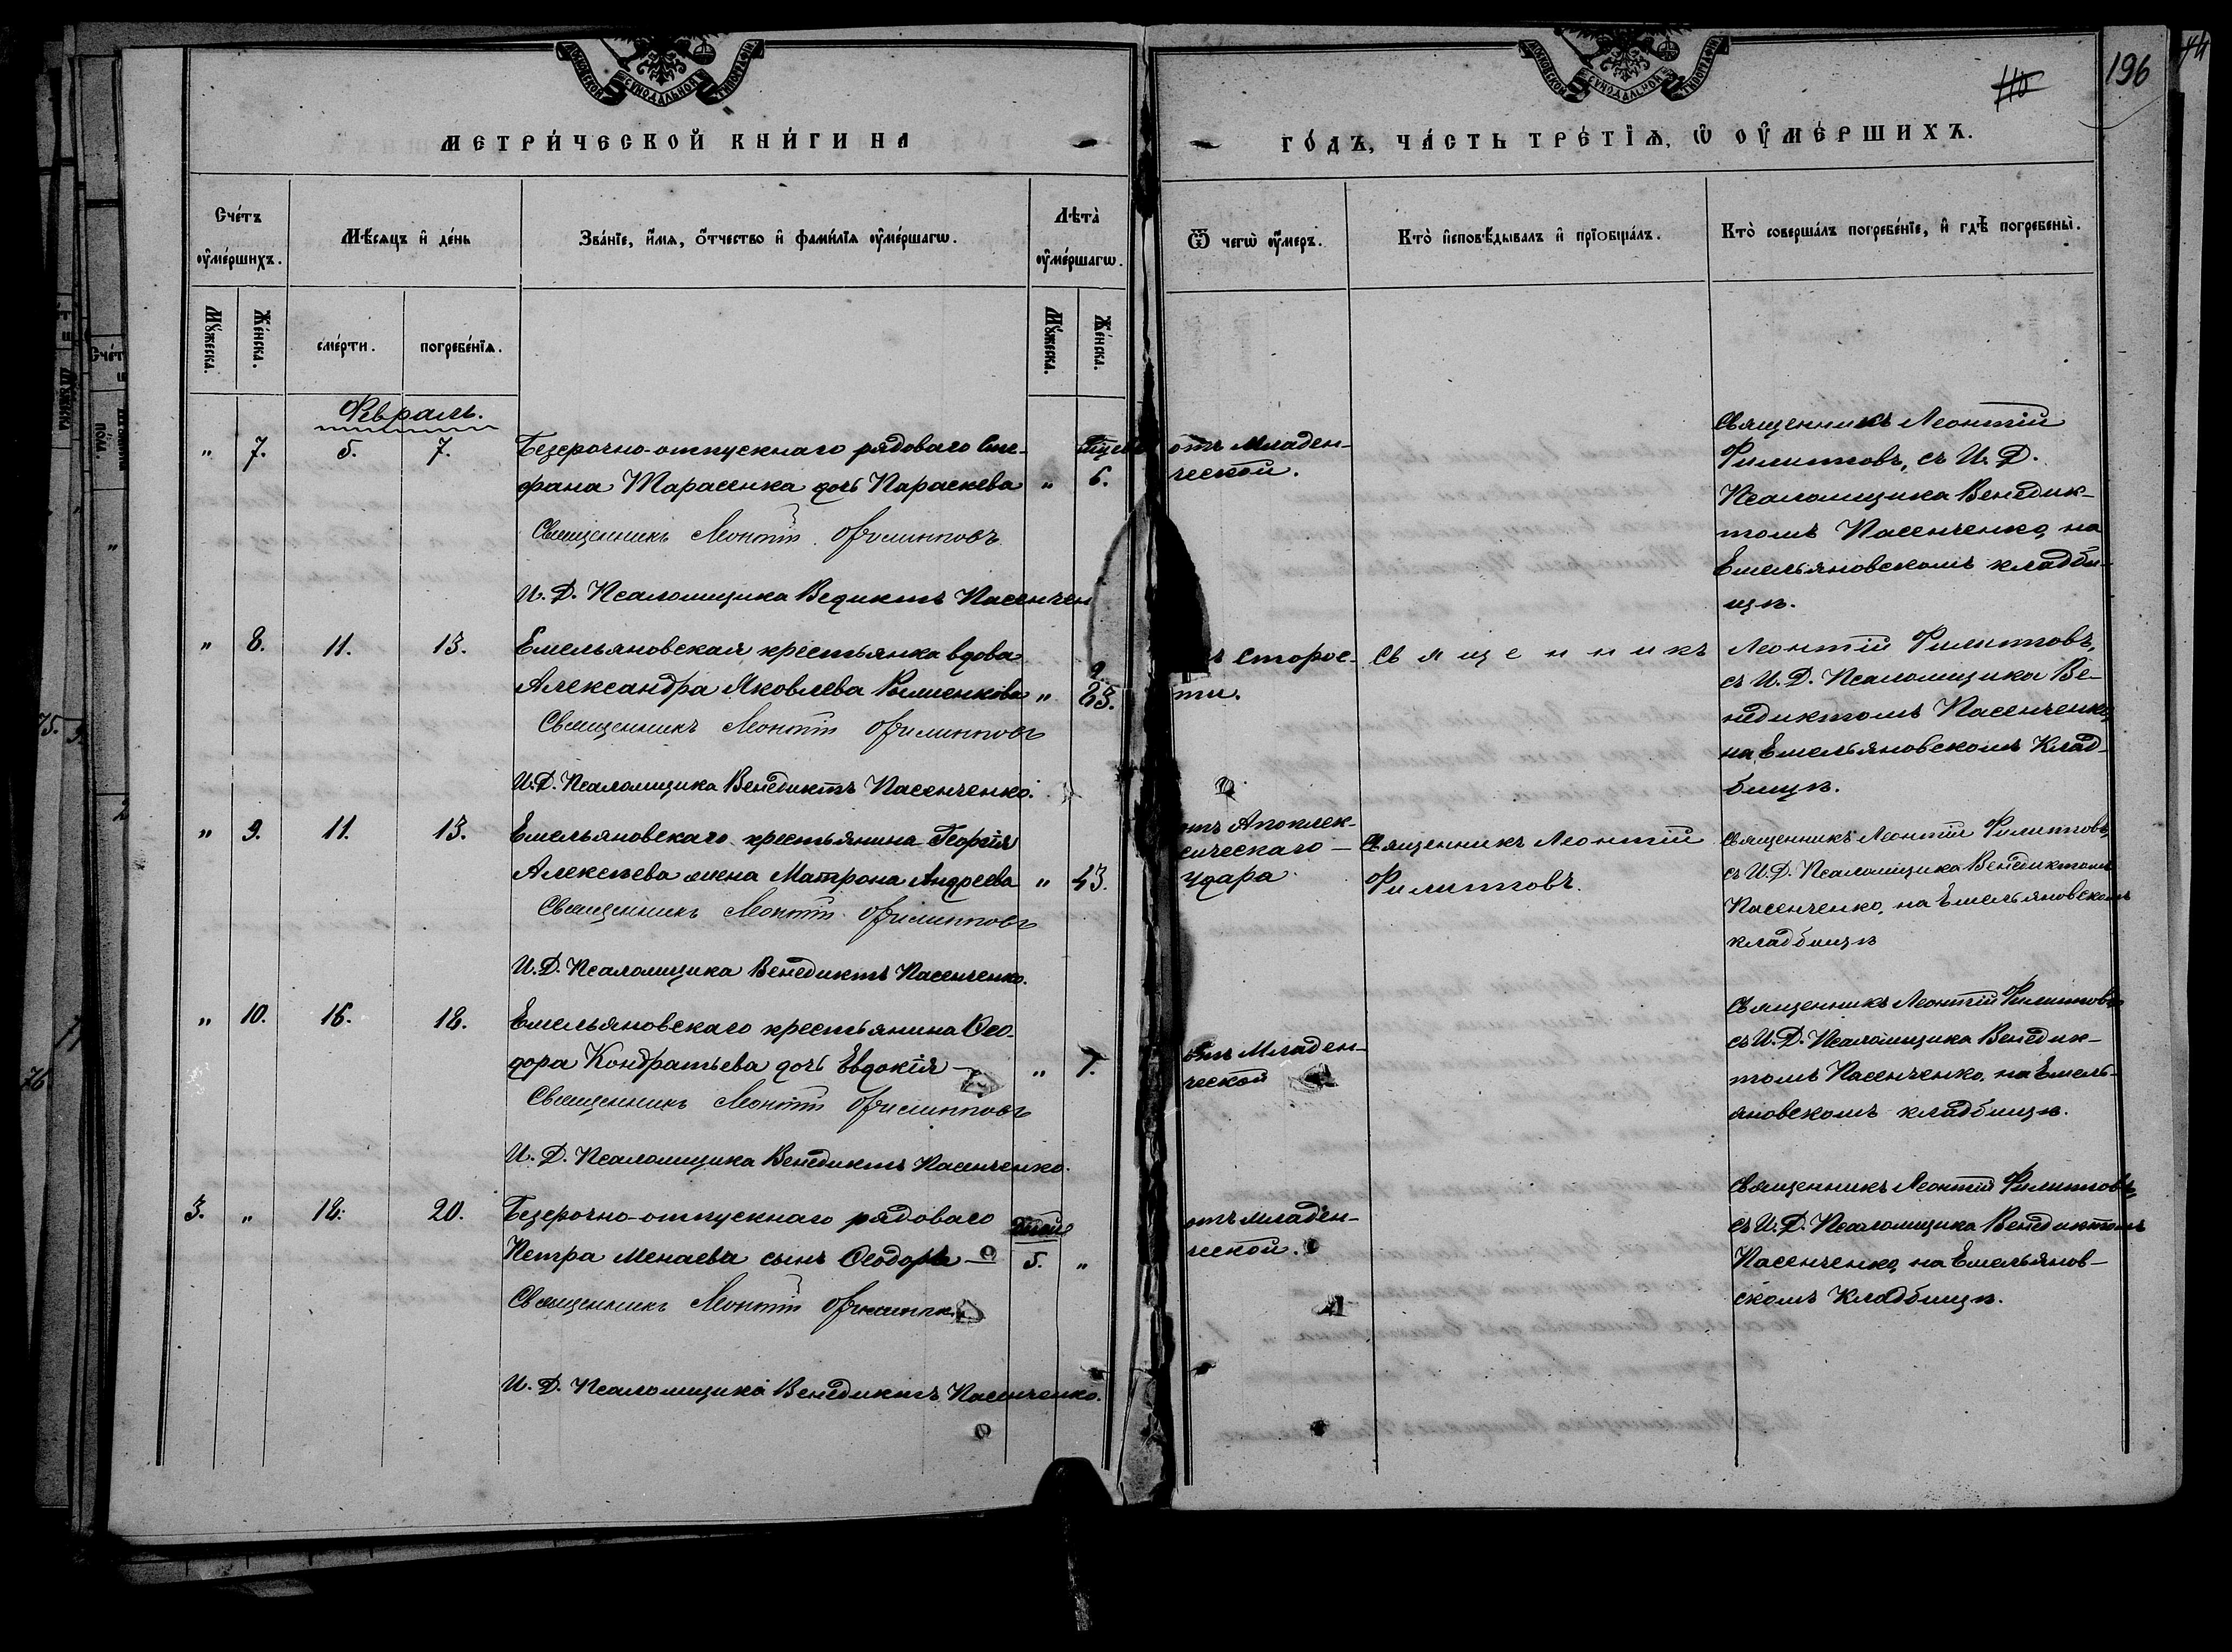 МОСКОВСКОЙ СѴНОДАЛЬНОЙ ТИПОГРАФІИ
МОСКОВСКОЙ СѴНОДАЛЬНОЙ ТИПОГРАФІИ
110
196
МЕТРИ́ЧЕСКОЙ КНИ́ГИ НА
ГО́ДЪ, ЧА́СТЬ ТРЕ́ТІѦ, Ѡ ОУМЕ́РШИХЪ.
Сче́тъ
оуме́ршихъ.
Мѣ́сяцъ и де́нь
Зва́нїе, и́мѧ, о́тчество и фами́лїѧ оуме́ршагѡ.
Лѣ́та
оуме́ршагѡ.
Ѿ чегѡ̀ оу́меръ.
Кто̀ исповѣ́дывалъ и прїобща́лъ.
Кто̀ соверша́лъ погребе́нїе, и гдѣ̀ погребены̀.
Му́жеска.
Же́нска.
сме́рти.
погребе́нїѧ.
Му́жеска.
Же́нска.
Февраль.
" 7. 5. 7.
Безсрочно-отпускнаго рядоваго Сте-
фана Тарасенка дочь Параскева " 6.
Священникъ Леонтій Филипповъ
И. Д. Псаломщика Ведиктъ Пасенчен
отъ младен-
ческой.
Священникъ Леонтій
Филипповъ, съ И. Д.
Псаломщика Венедик-
томъ Пасенченко, на
Емельяновскомъ кладби-
щѣ.
" 8. 11. 13.
Емельяновская крестьянка вдова
Александра Яковлева "
Священникъ Леонтій Филипповъ
И. Д. Псаломщика Венедиктъ Пасенченко.
старос-
ти.
Священникъ
Леонтій Филипповъ,
съ И. Д. Псаломщика Ве-
недиктомъ Пасенченко,
на Емельяновскомъ Клад-
бищѣ.
" 9. 11. 13.
Емельяновскаго крестьянина Георгія
Алексѣева жена Матрона Андреева " 43.
Священникъ Леонтій Филипповъ
И. Д. Псаломщика Венедиктъ Пасенченко.
отъ Апоплек-
сическаго
удара.
Священникъ Леонтій
Филипповъ.
Священникъ Леонтій Филипповъ,
съ И. Д. Псаломщика Венедиктомъ
Пасенченко, на Емельяновскомъ
кладбищѣ
" 10. 16. 18.
Емельяновскаго крестьянина Ѳео-
дора Кондратьева дочь Евдокія " 7.
Священникъ Леонтій Филипповъ
И. Д. Псаломщика Венедиктъ Пасенченко.
отъ младен-
ческой
Священникъ Леонтій Филипповъ
съ И. Д. Псаломщика Венедик-
томъ Пасенченко, на Емель-
яновскомъ кладбищѣ.
3. " 18. 20.
Безсрочно-отпускнаго рядоваго
Петра Менаева сынъ Ѳеодоръ 5. "
Священникъ Леонтій
И. Д. Псаломщика Венедиктъ Пасенченко.
отъ младен-
ческой.
Священникъ Леонтій Филипповъ,
съ И. Д. Псаломщика Венедиктомъ
Пасенченко, на Емельянов-
скомъ Кладбищѣ.